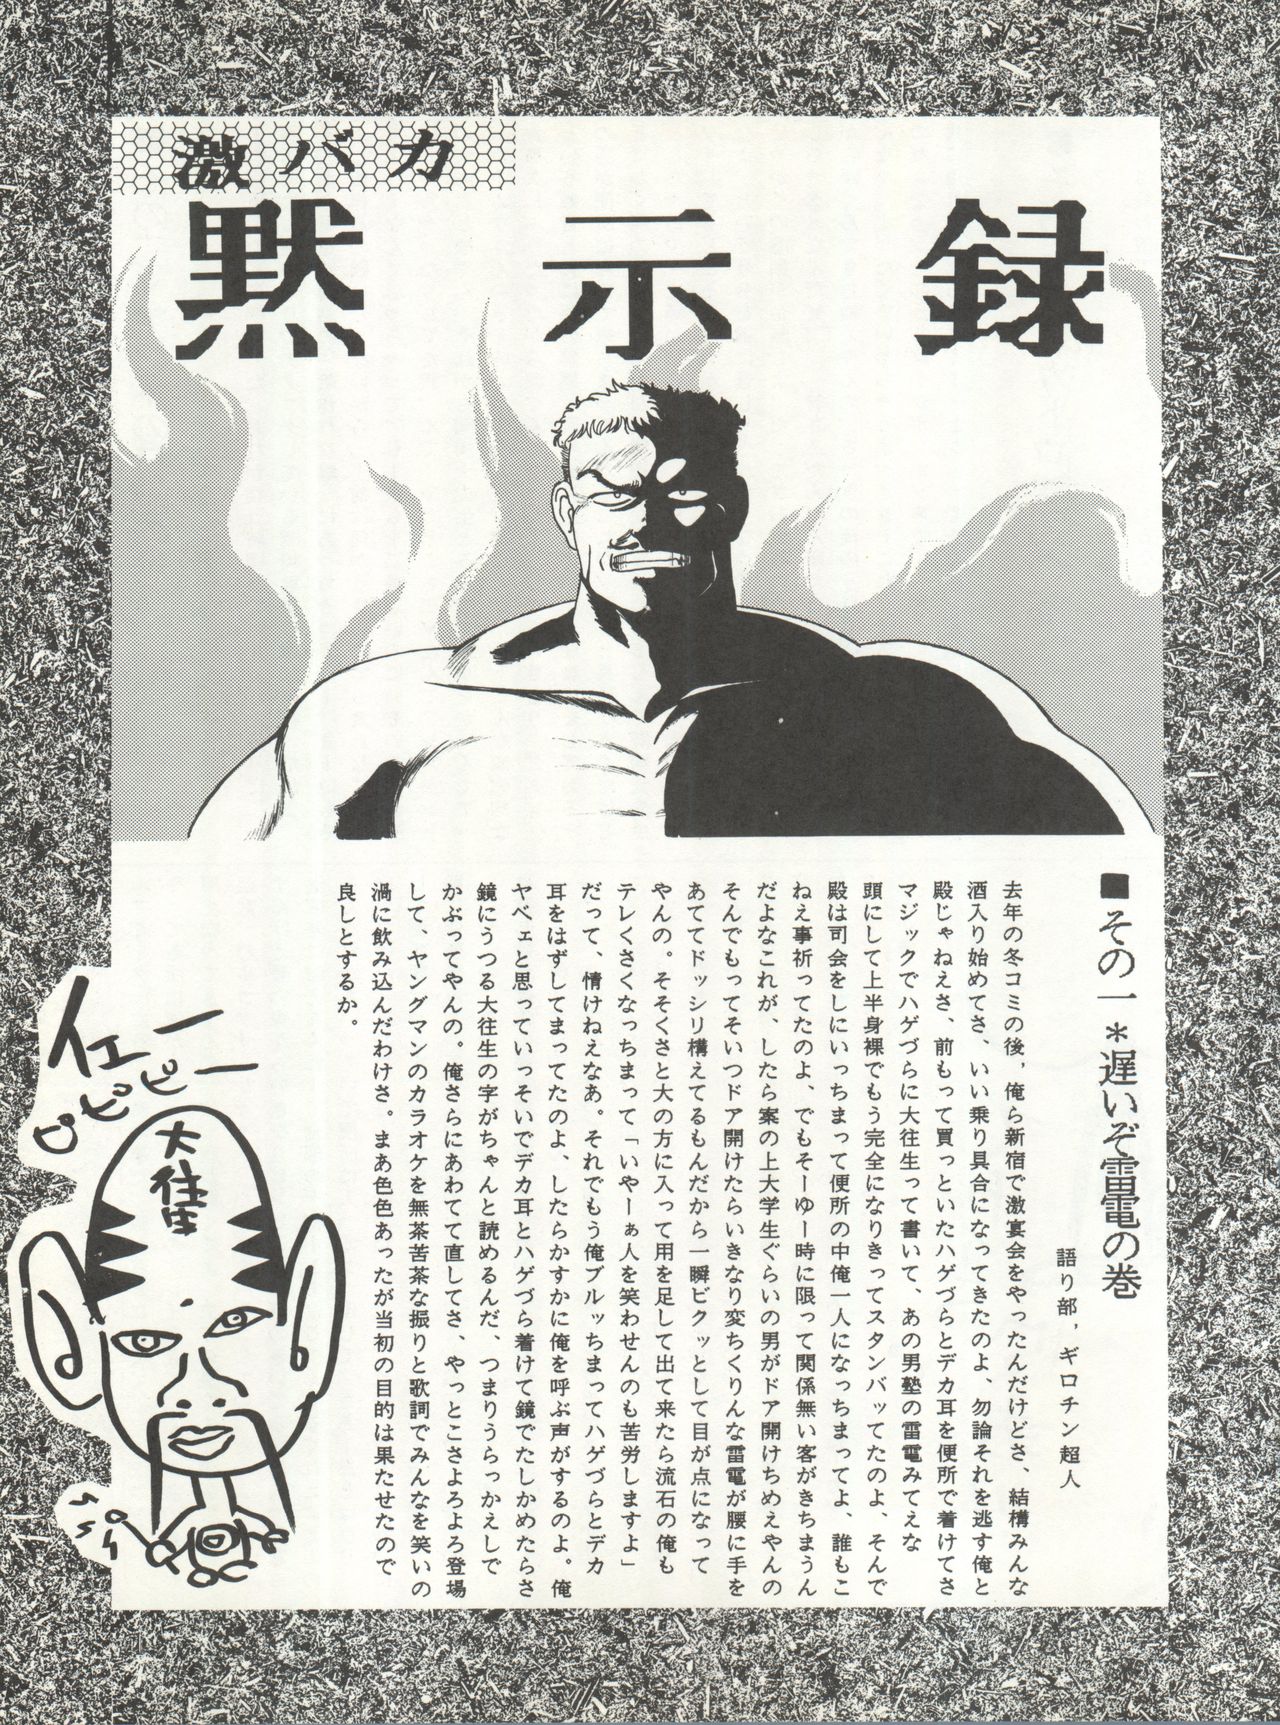 激バカ
黙示録
■その一＊遅いぞ雷電の巻
語り部，ギロチン超人
去年の冬コミの後，俺ら新宿で激宴会をやったんだけどさ、結構みんな
酒入り始めてさ、いい乗り具合になってきたのよ、勿論それを逃す俺と
殿じゃねえさ、前もって買っといたハゲづらとデカ耳を便所で着けてさ
マジックでハゲづらに大往生って書いて、あの男塾の雷電みてえな
頭にして上半身裸でもう完全になりきってスタンバッてたのよ、そんで
殿は司会をしにいっちまって便所の中俺一人になっちまってよ、誰もこ
ねえ事祈ってたのよ、でもそーゆー時に限って関係無い客がきちまうん
だよなこれが、したら案の上大学生ぐらいの男がドア開けちめえやんの
そんでもってそいつドア開けたらいきなり変ちくりんな雷電が腰に手を
あててドッシリ構えてるもんだから一瞬ビクッとして目が点になって
やんの。そそくさと大の方に入って用を足して出て来たら流石の俺も
テレくさくなっちまって「いやーぁ人を笑わせんのも苦労しますよ」
だって、情けねえなあ。それでもう俺ブルッちまってハゲづらとデカ
耳をはずしてまってたのよ、したらかすかに俺を呼ぶ声がするのよ。俺
ヤベェと思っていっそいでデカ耳とハゲづら着けて鏡でたしかめたらさ
鏡にうつる大往生の字がちゃんと読めるんだ、つまりうらっかえしで
かぶってやんの。俺さらにあわてて直してさ、やっとこさよろよろ登場
して、ヤングマンのカラオケを無茶苦茶な振りと歌詞でみんなを笑いの
渦に飲み込んだわけさ。まあ色色あったが当初の目的は果たせたので
良しとするか。
イエー
ピピピー
大往生